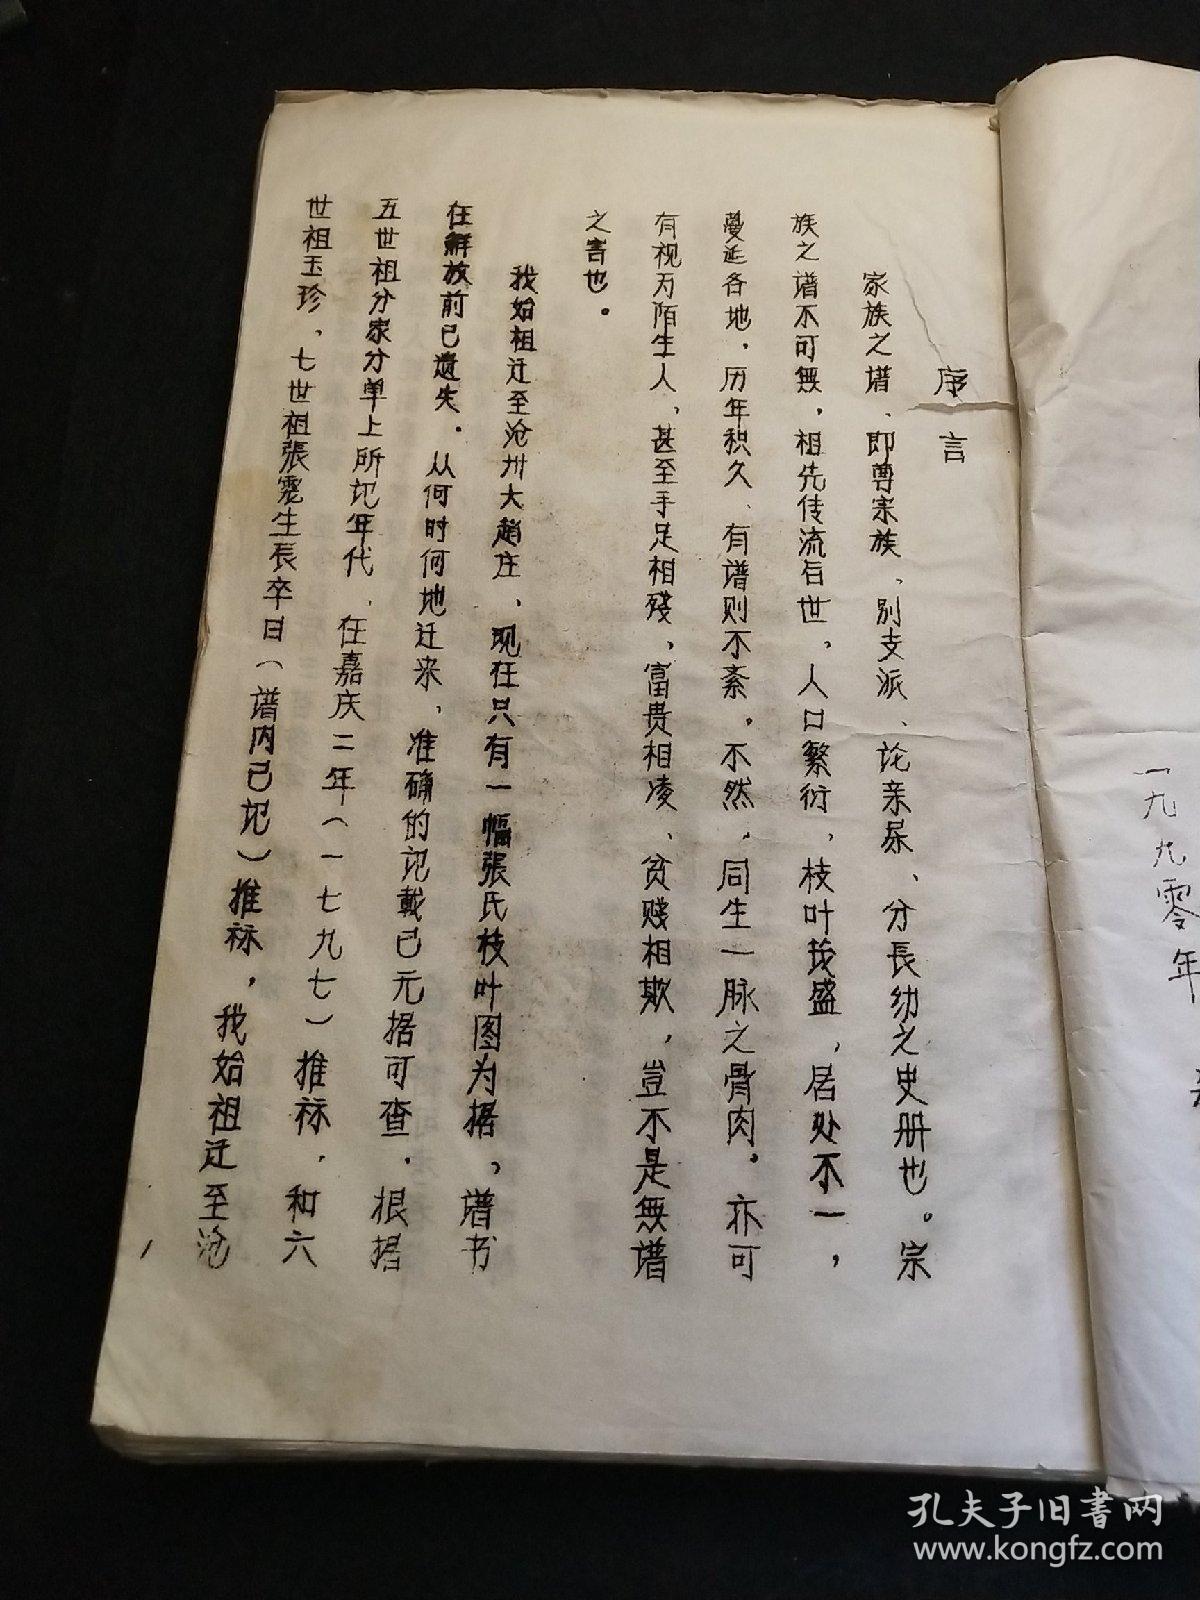 一九九零年
序言
家族之谱、即尊宗族、别支派、论亲尿、分長幼之史册也。宗
族之谱不可無，祖先传流后世，人口繁衍，枝叶茂盛，居处不一，
蔓延各地，历年积久、有谱则不紊。不然，同生一脉之骨肉。亦可
有视为陌生人、甚至手足相残、富贵相凌、贫贱相欺，岂不是無谱
之害也。
我始祖迁至沧州大趙庄、现在只有一幅張氏枝叶图为据，谱书
在解放前已遗失．从何时何地迁来，准确的记載已无据可查．根据
五世祖分家分单上所记年代、在嘉庆二年（一七九七）推标．和六
世祖玉珍、七世祖張生辰卒日（谱内已记）推标，我始祖迁至沧
1
孔夫子旧書网
www.kongfz.com